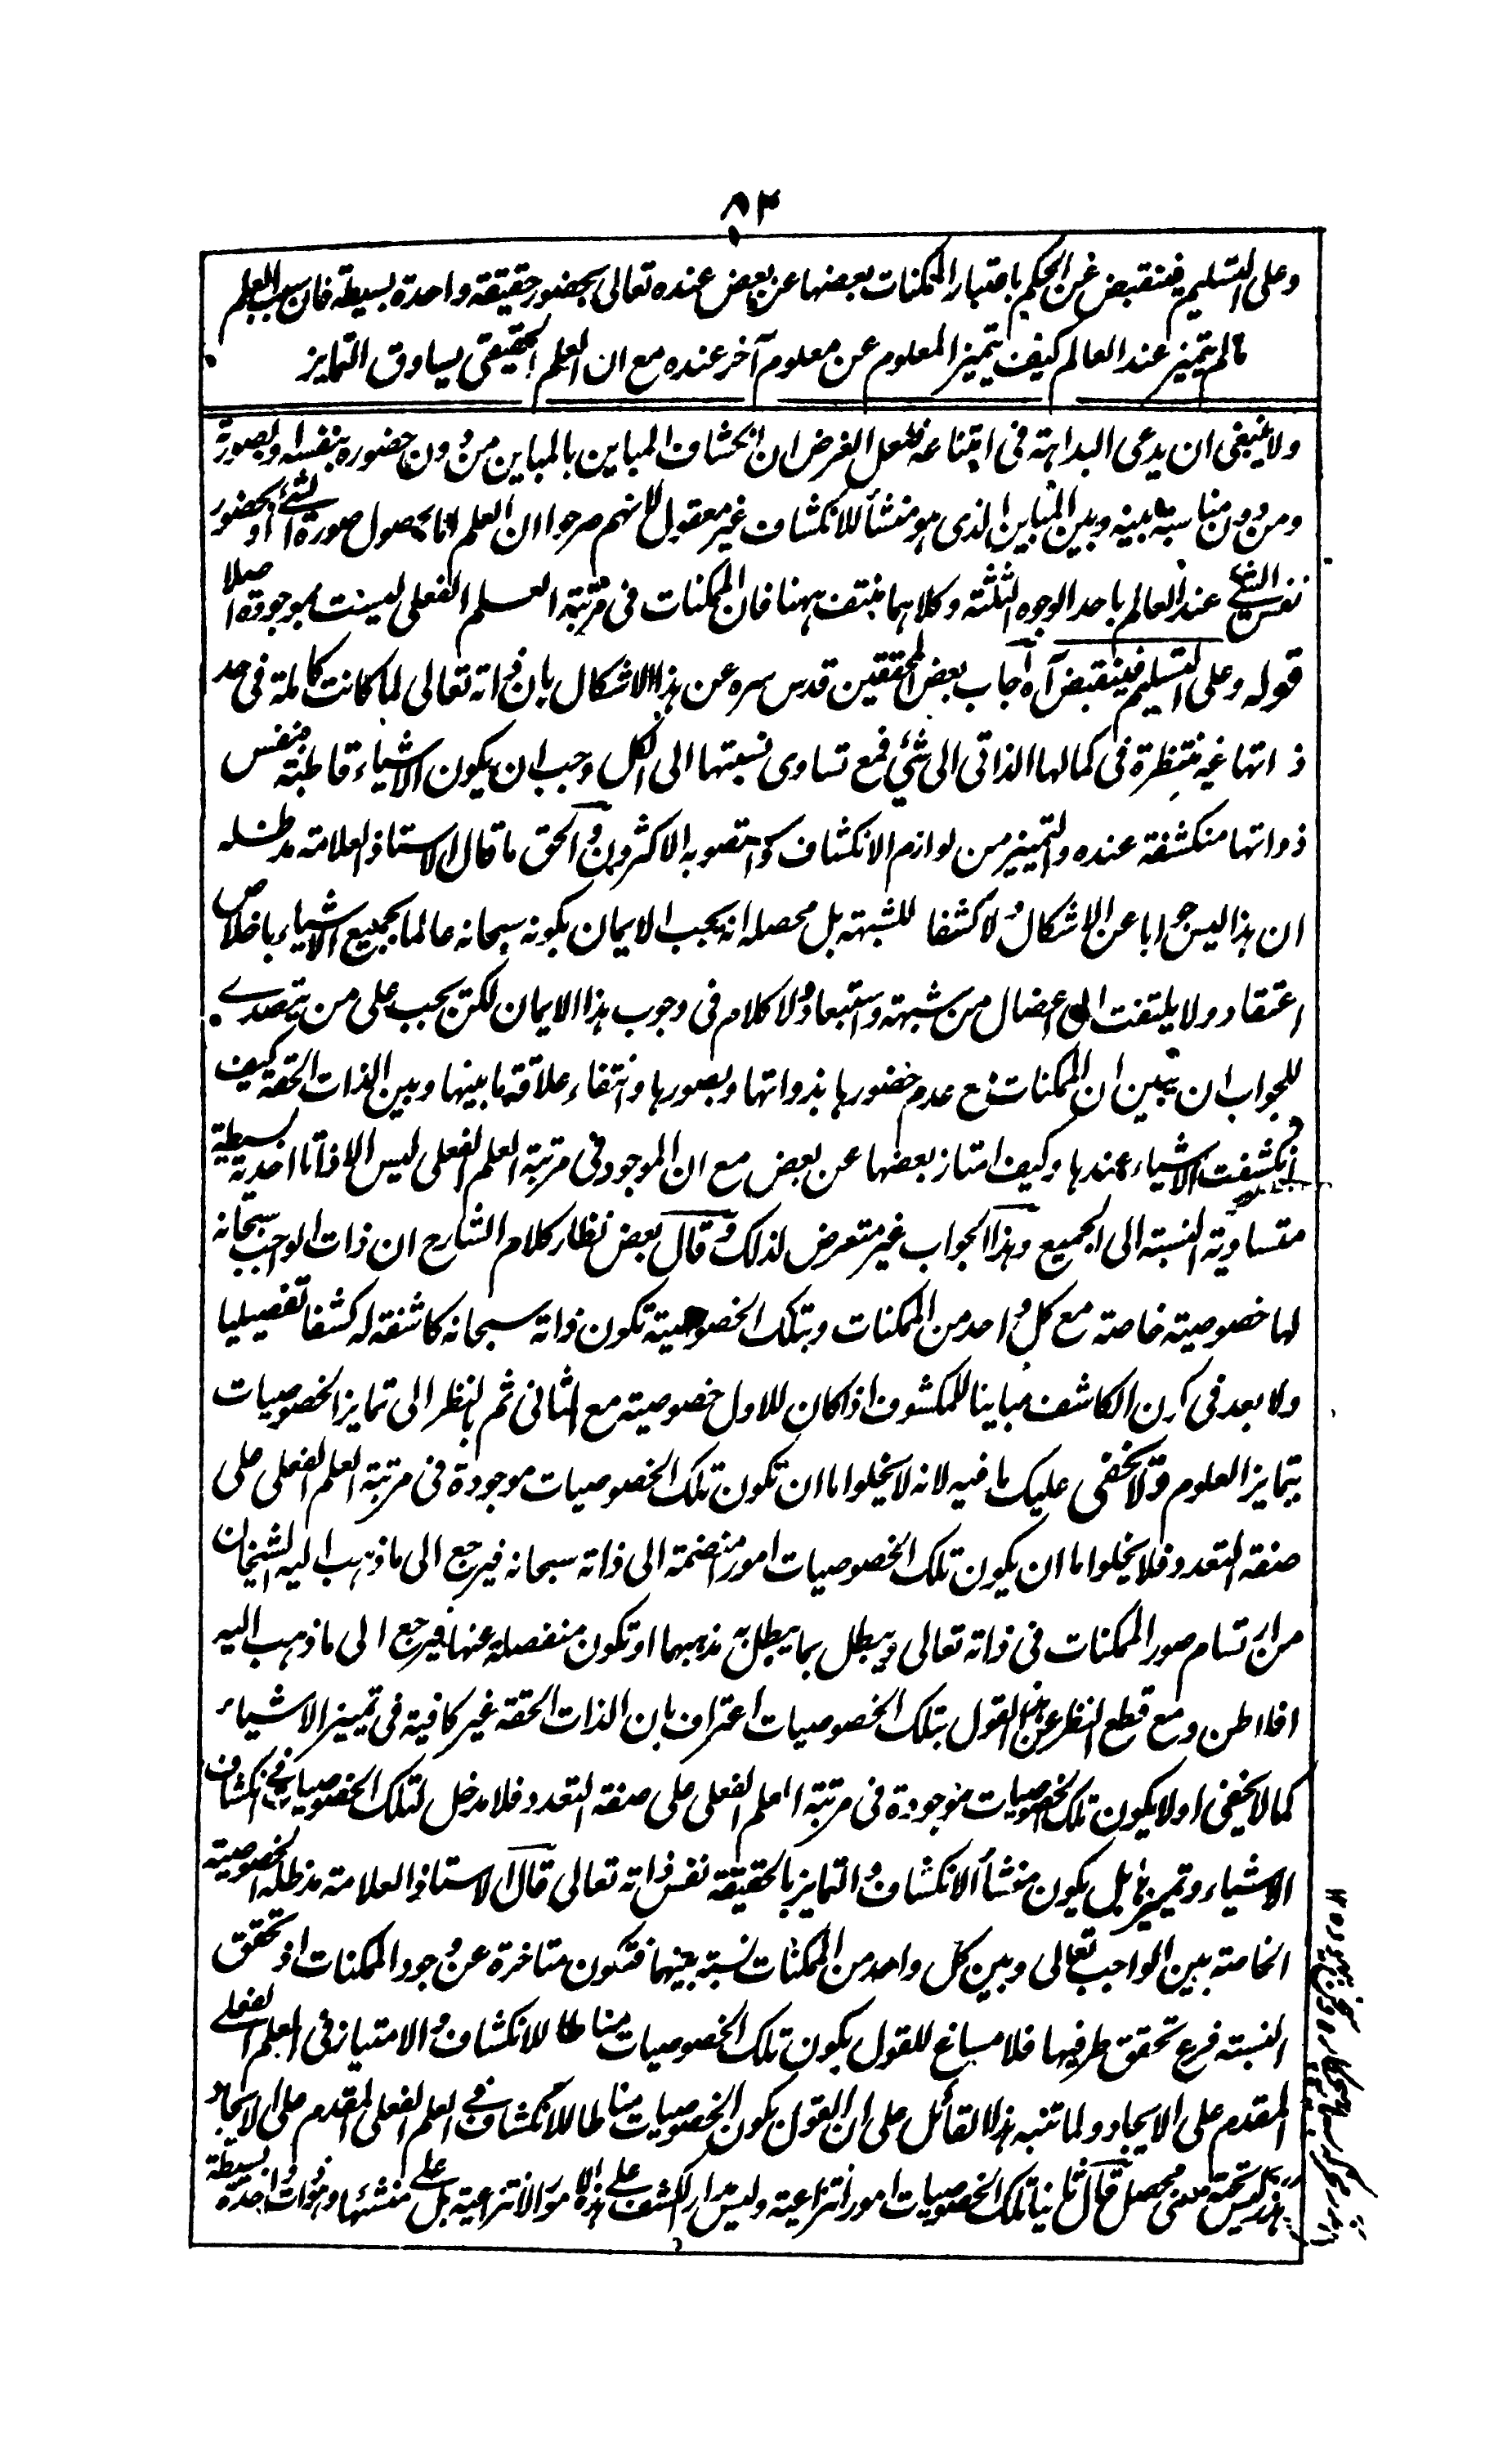 ٨٢
وعلى التسليم فينقبض عن الحكم بامتياز الممكنات بعضها عن بعض عنده تعالى بحضور حقيقة واحدة بسيطة فان سبب العلم
مالم يتميز عند العالم كيف يتميز المعلوم عن معلوم آخر عنده مع ان العلم الحقيقي يساوق التمايز
ولا ينبغي ان يدعى البداهة في امتناعه فلعل الغرض ان انكشاف المباين بالمباين من دون حضوره بنفسه او بصورة
ومن دون مناسبة بينه وبين المباين الذي هو منشأ للانكشاف غير معقول لانهم صرحوا ان العلم اما بحصول صورة الشئ او بحضور
نفس الشئ عند العالم باحد الوجوه الثلثة وكلاهما منتف ههنا فان الممكنات في مرتبة العلم الفعلي ليست بموجودة اصلا
قوله وعلى التسليم فينقبض آه اجاب بعض المحققين قدس سره عن هذا الاشكال بان ذاته تعالى لما كانت كاملة في حد
ذاتها غير منتظرة في كمالها الذاتي الى شئ فمع تساوي نسبتها الى الكل وجب ان يكون الاشياء قاطبة بنفس
ذواتها منكشفة عنده والتمييز من لوازم الانكشاف واستصوبه الاكثرون والحق ما قال الاستاذ العلامة مد ظله
ان هذا ليس جوابا عن الاشكال ولا كشفا للشبهة بل محصله انه يجب الايمان بكونه سبحانه عالما بجميع الاشياء باخلاص
اعتقاد ولا يلتفت الى اعضال من شبهة واستبعاد ولا كلام في وجوب هذا الايمان لكن يجب على من يتصدى
للجواب ان يبين ان الممكنات مع عدم حضورها بذواتها وبصورها وانتفاء علاقة ما بينها وبين الذات الحقة كيف
انكشفت الاشياء عندها وكيف امتاز بعضها عن بعض مع ان الموجود في مرتبة العلم الفعلي ليس الا ذاتا احدية بسيطة
متساوية النسبة الى الجميع وهذا الجواب غير متعرض لذلك وقال بعض نظار كلام الشارح ان ذات الواجب سبحانه
لها خصوصية خاصة مع كل واحد من الممكنات وبتلك الخصوصية تكون ذاته سبحانه كاشفة له كشفا تفصيليا
ولا بعد في كون الكاشف مباينا للمكشوف اذا كان للاول خصوصية مع الثاني ثم بالنظر الى تمايز الخصوصيات
يتمايز العلوم ولا يخفى عليك ما فيه لانه لا يخلوا ما ان تكون تلك الخصوصيات موجودة في مرتبة العلم الفعلي على
صفة التعدد فلا يخلوا ما ان يكون تلك الخصوصيات امور منضمة الى ذاته سبحانه فيرجع الى ما ذهب اليه الشيخان
من ارتسام صور الممكنات في ذاته تعالى ويبطل بما يبطل به مذهبهما او تكون منفصلة عنها فيرجع الى ما ذهب اليه
افلاطن ومع قطع النظر عن هذا القول بتلك الخصوصيات اعتراف بان الذات الحقة غير كافية في تمييز الاشياء
كما لا يخفى اولا يكون تلك الخصوصيات موجودة في مرتبة العلم الفعلي على صفة التعدد فلا مدخل لتلك الخصوصيات في انكشاف
الاشياء وتمييزها بل يكون منشأ الانكشاف والتمايز بالحقيقة نفس ذاته تعالى قال الاستاذ العلامة مد ظله الخصوصية
الخاصة بين الواجب تعالى وبين كل واحد من الممكنات نسبة بينهما فتكون متاخرة عن وجود الممكنات اذ تحقق
النسبة فرع تحقق طرفيها فلا مساغ للقول بكون تلك الخصوصيات مناطا للانكشاف والامتياز في العلم الفعلي
المقدم على الايجاد ولما تنبه هذا القائل على ان القول بكون الخصوصيات مناطا للانكشاف في العلم الفعلي المقدم على الايجاد
هذر ليس تحته معنى محصل قال ثانيا تلك الخصوصيات امور انتزاعية وليس مدار الكشف على هذه الامور الانتزاعية بل على منشئها وهو ذات واحدة بسيطة